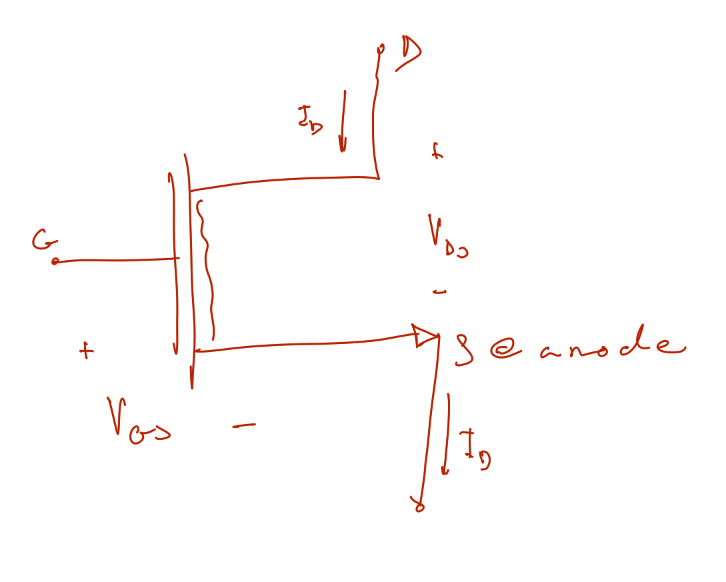 D
I_D
+
G
V_DS
-
S @ anode
+
V_GS -
I_D